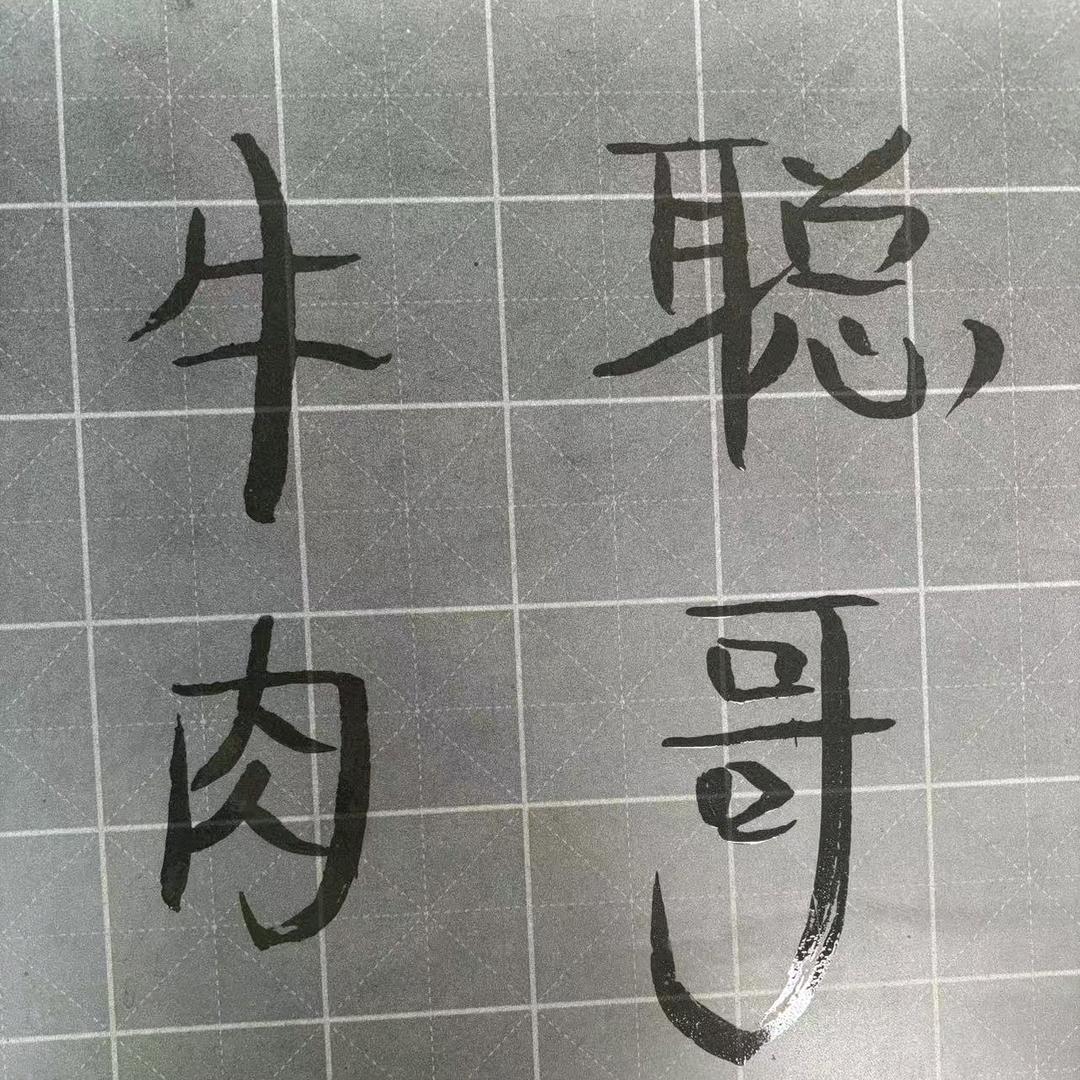 聪哥
牛肉